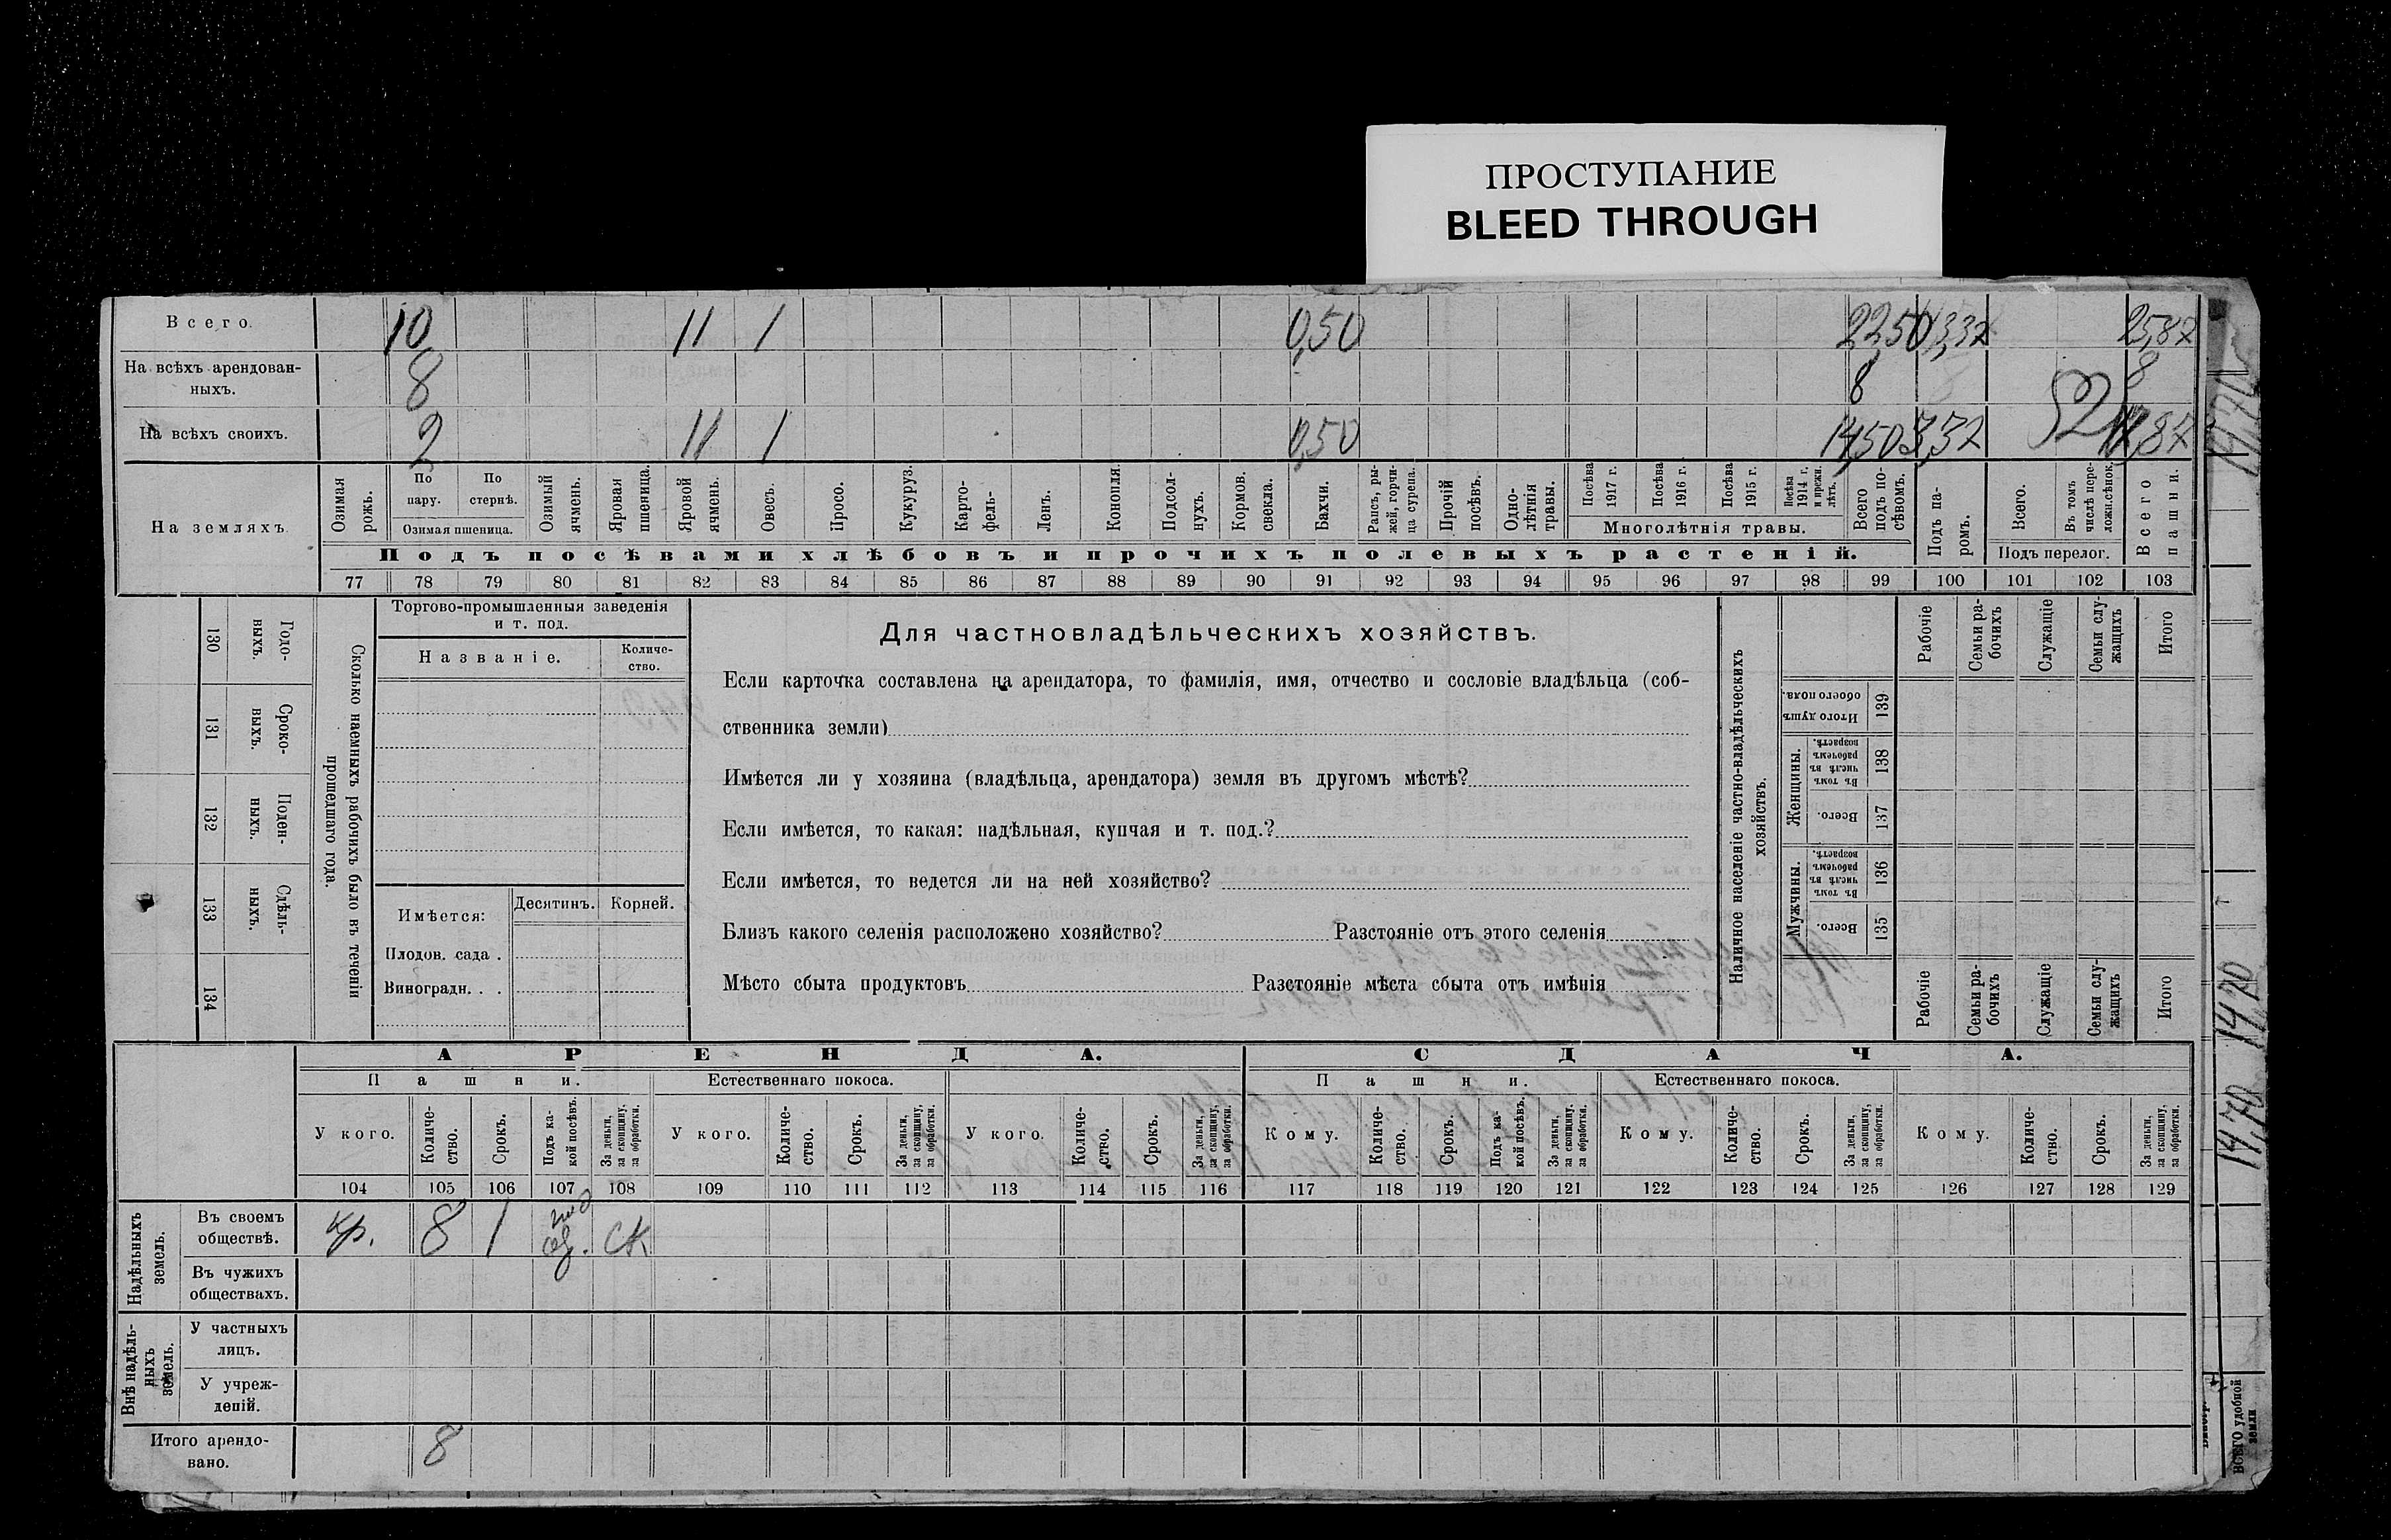 ПРОСТУПАНИЕ
BLEED THROUGH
Всего. 10 11 1 0,50 22,50 3,37 25,87
На всѣхъ арендован-
ныхъ. 8 8 8
На всѣхъ своихъ. 2 11 1 0,50 14,50 3,37 17,87
На земляхъ.
Озимая рожь.
По пару.
По стернѣ.
Озимая пшеница.
Озимый ячмень.
Яровая пшеница.
Яровой ячмень.
Овесъ.
Просо.
Кукуруз.
Карто-
фель-
Ленъ.
Конопля.
Подсол-
нухъ.
Кормов. свекла.
Бахчи.
Рапсъ, ры-
жей, горчи-
ца сурепа.
Прочій посѣвъ.
Одно-
лѣтнія травы.
Посѣва 1917 г.
Посѣва 1916 г.
Посѣва 1915 г.
Посѣва 1914 г. и прежн. лѣтъ.
Многолѣтнія травы.
Всего подъ по-
сѣвомъ.
Подъ па-
ромъ.
Всего.
Въ томъ числѣ пере-
Подъ перелог.
Всего пашни.
Подъ посѣвами хлѣбовъ и прочихъ полевыхъ растеній.
77 78 79 80 81 82 83 84 85 86 87 88 89 90 91 92 93 94 95 96 97 98 99 100 101 102 103
130 Годо-
выхъ.
131 Сроко-
выхъ.
132 Поден-
ныхъ.
133 Сдѣль-
ныхъ.
134
Сколько наемныхъ рабочихъ было въ теченіи
прошедшаго года.
Торгово-промышленныя заведенія
и т. под.
Названіе.
Количе-
ство.
Имѣется:
Десятинъ. Корней.
Плодов. сада .
Виноградн. . .
Для частновладѣльческихъ хозяйствъ.
Если карточка составлена на арендатора, то фамилія, имя, отчество и сословіе владѣльца (соб-
ственника земли)
Имѣется ли у хозяина (владѣльца, арендатора) земля въ другомъ мѣстѣ?
Если имѣется, то какая: надѣльная, купчая и т. под.?
Если имѣется, то ведется ли на ней хозяйство?
Близъ какого селенія расположено хозяйство? Разстояніе отъ этого селенія
Мѣсто сбыта продуктовъ Разстояніе мѣста сбыта отъ имѣнія
Наличное населеніе частно-владѣльческихъ
хозяйствъ.
Рабочіе
Семьи ра-
бочихъ
Служащіе
Семьи слу-
жащихъ
Итого
Итого душъ обоего пола. 139
Женщины.
Въ томъ числѣ въ рабочемъ возрастѣ. 138
Всего. 137
Мужчины.
Въ томъ числѣ въ рабочемъ возрастѣ. 136
Всего. 135
Рабочіе
Семьи ра-
бочихъ
Служащіе
Семьи слу-
жащихъ
Итого
АРЕНДА. СДАЧА.
Пашни. Естественнаго покоса. Пашни. Естественнаго покоса.
У кого.
Количе-
ство.
Срокъ.
Подъ ка-
кой посѣвъ.
За деньги,
за скопщину,
за обработки.
У кого.
Количе-
ство.
Срокъ.
За деньги,
за скопщину,
за обработки.
У кого.
Количе-
ство.
Срокъ.
За деньги,
за скопщину,
за обработки.
Кому.
Количе-
ство.
Срокъ.
Подъ ка-
кой посѣвъ.
За деньги,
за скопщину,
за обработки.
Кому.
Количе-
ство.
Срокъ.
За деньги,
за скопщину,
за обработки.
Кому.
Количе-
ство.
Срокъ.
За деньги,
за скопщину,
за обработки.
104 105 106 107 108 109 110 111 112 113 114 115 116 117 118 119 120 121 122 123 124 125 126 127 128 129
Надѣльныхъ
земель.
Въ своемъ
обществѣ. кр. 8 1 ск
Въ чужихъ
обществахъ.
Внѣ надѣль-
ныхъ
земель.
У частныхъ
лицъ.
У учреж-
деній.
Итого арендо-
вано. 8
14,70 14,70
ВСЕГО удобной
земли